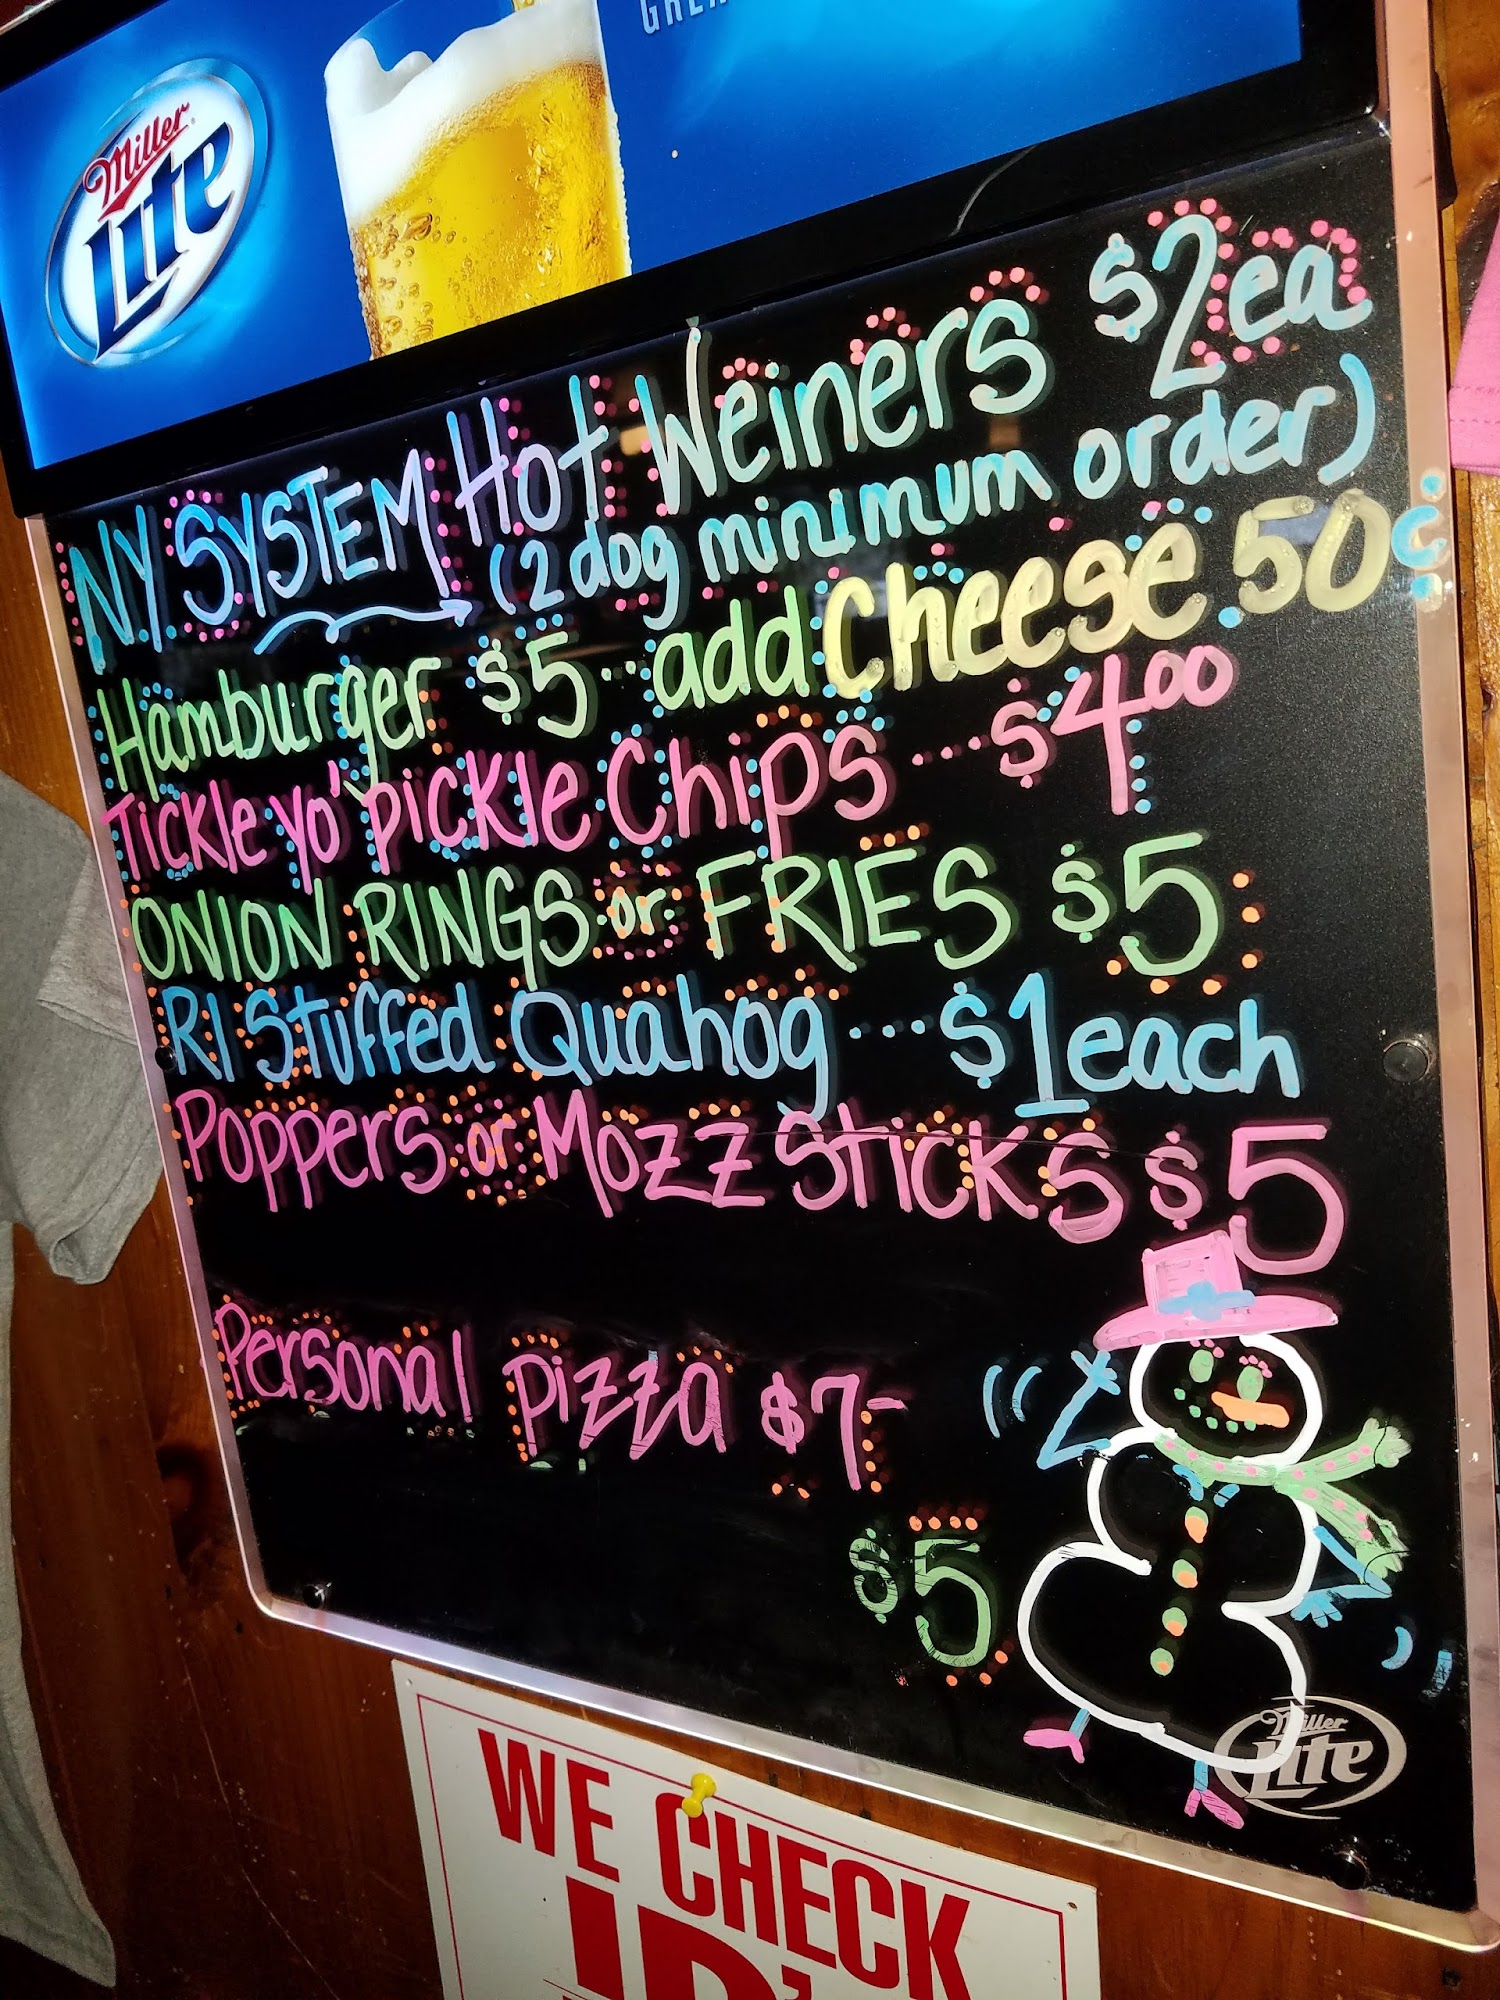 Miller
Lite
NY SYSTEM Hot Weiners $2ea
(2 dog minimum order)
Hamburger $5 .. add Cheese 50¢
Tickle yo' pickle Chips ... $4.00
ONION RINGS or FRIES $5
RI Stuffed Quahog ... $1 each
Poppers or Mozz Sticks $5
Personal pizza $7-
$5
Miller
Lite
WE CHECK
ID'